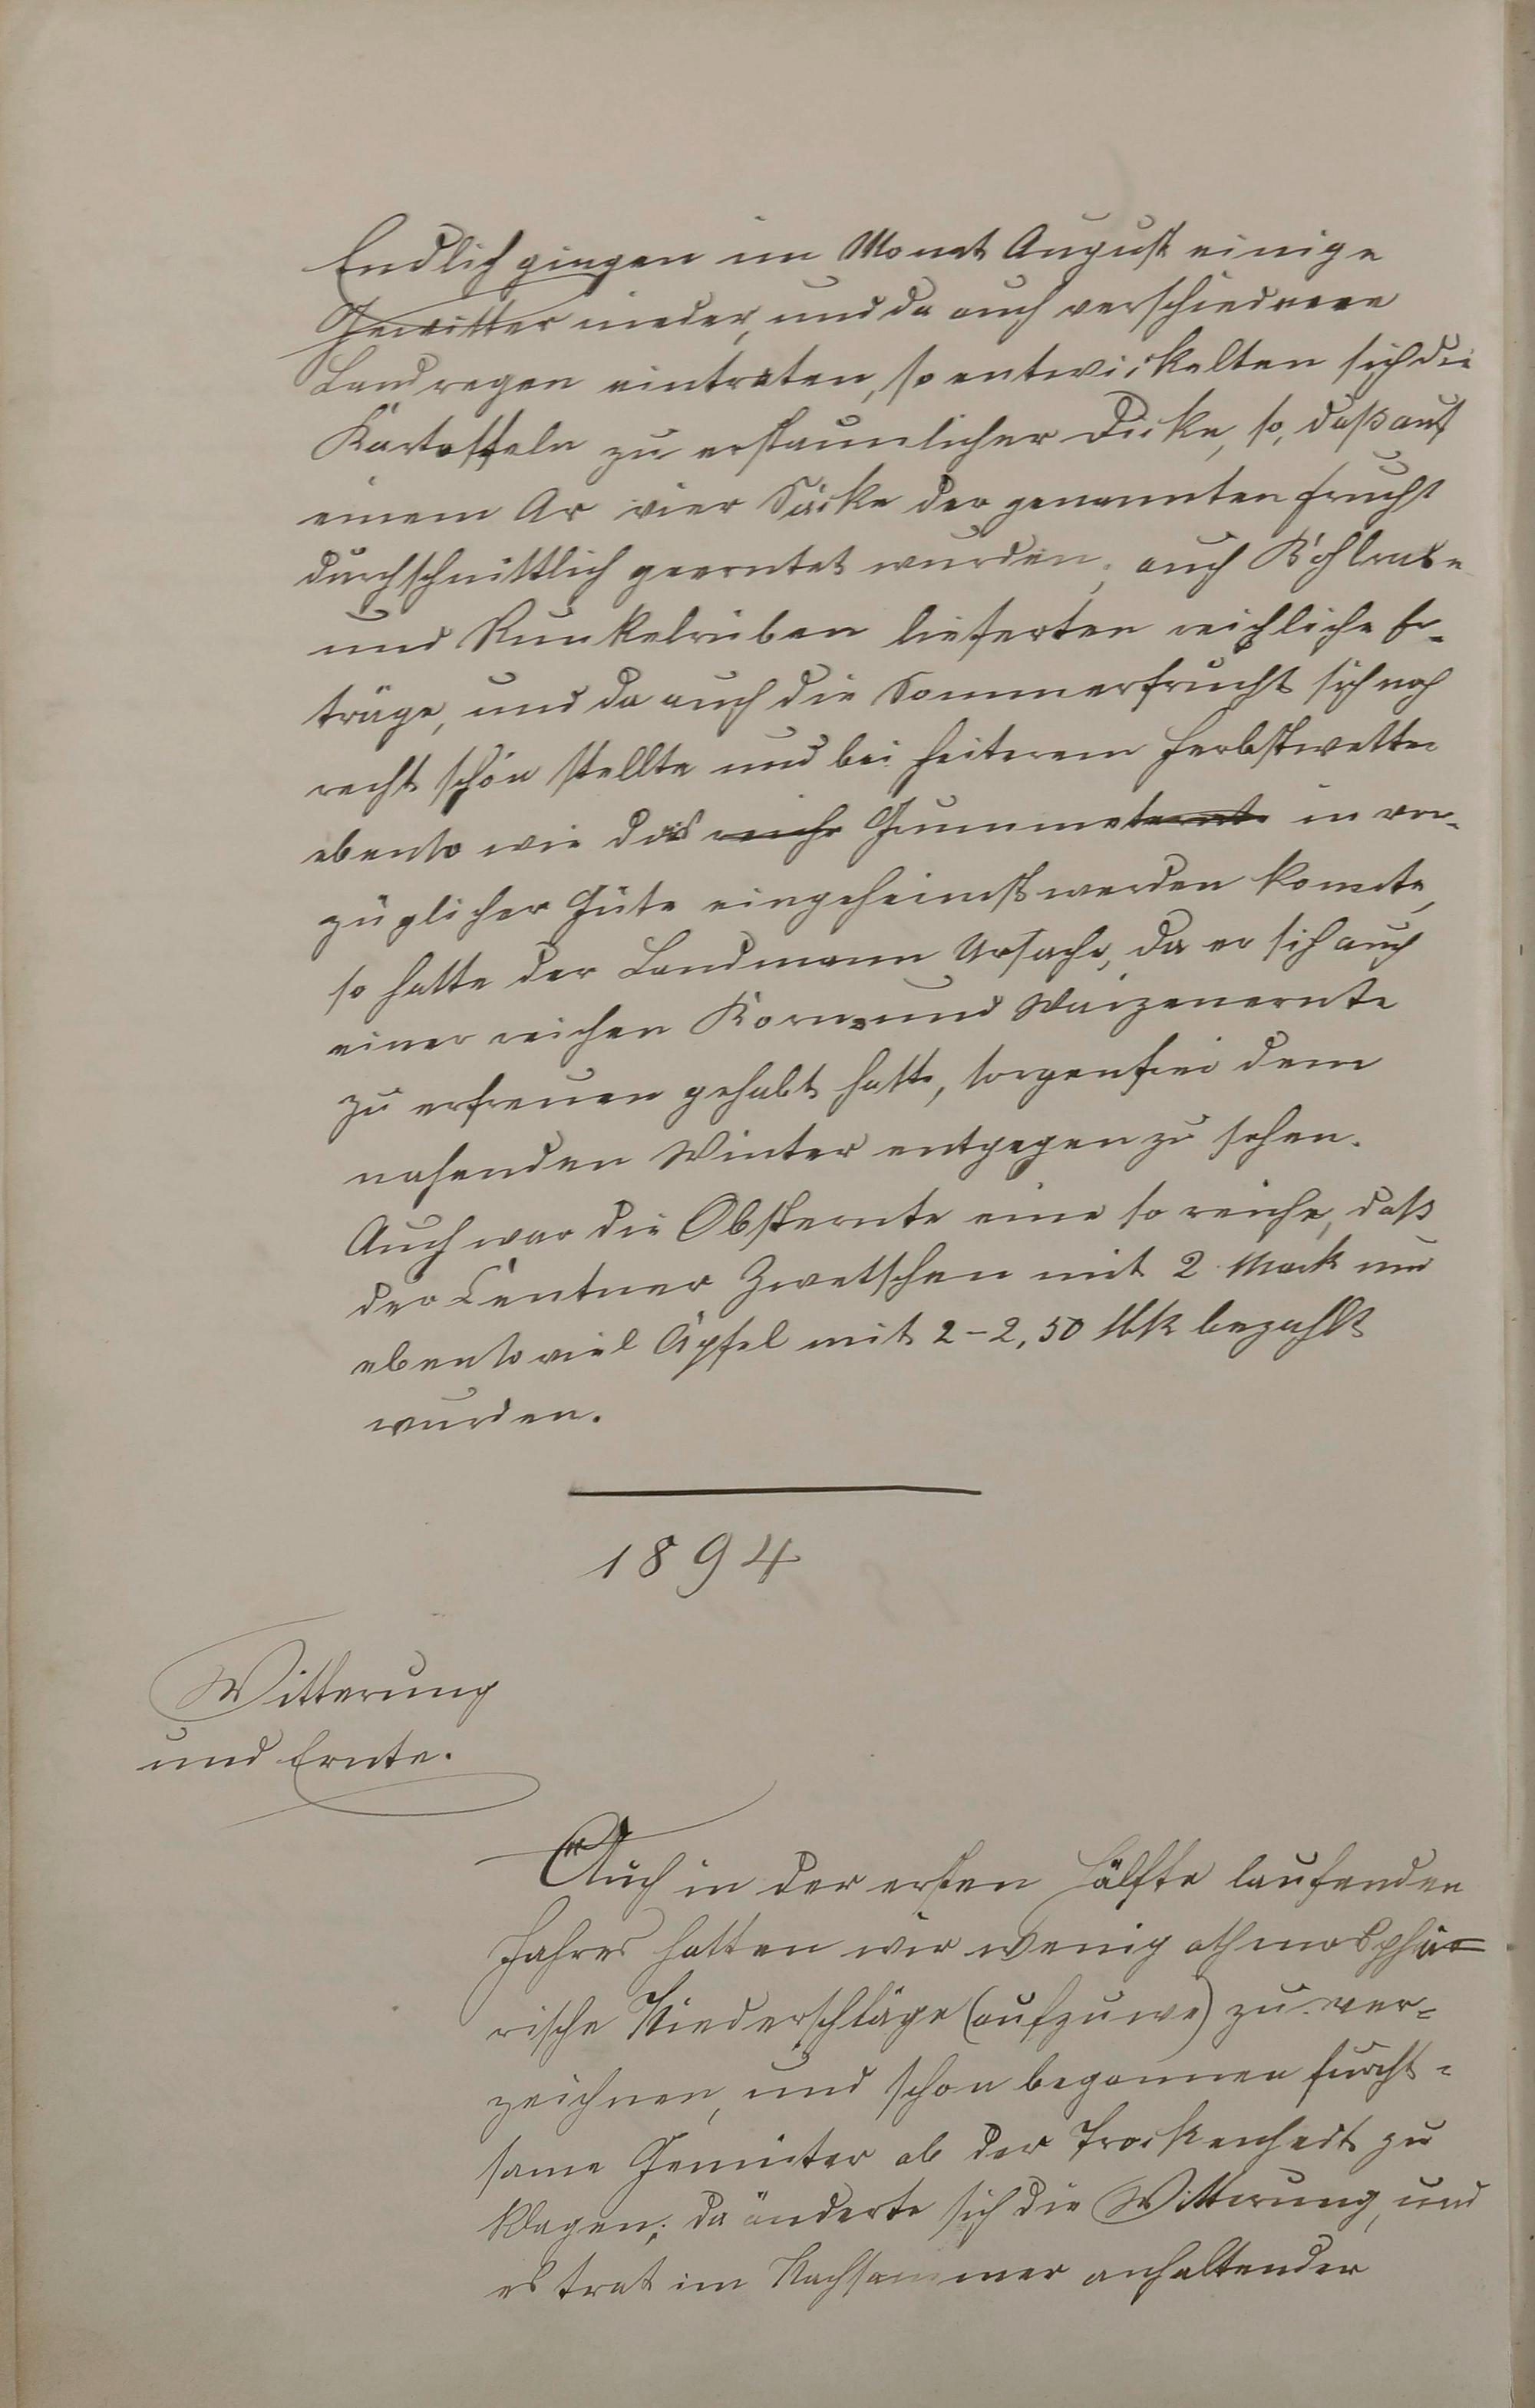 Endlich gingen im Monat August einige
Gewitter nieder, und da auch verschiedene
Landregen eintraten, so entwickelten sich die
Kartoffeln zu erstaunlicher Dicke, so, daß auf
einem Ar vier Säcke der genannten Frucht
durchschnittlich geerntet wurden; auch Kohlrabe
und Runkelrüben lieferten reichliche Er-
träge, und da auch die Sommerfrucht sich noch
recht schön stellte und bei heiterem Herbstwetter
ebenso wie das reiche Grummeternte in vor-
züglicher Güte eingeheimst werden konnte,
so hatte der Landmann Ursache, da er sich auch
einer reichen Korn- und Waizenernte
zu erfreuen gehabt hatte, sorgenfrei dem
nahenden Winter entgegen zu sehen.
Auch war die Obsternte eine so reiche, daß
der Centner Zwetschen mit 2 Mark und
ebenso viel Äpfel mit 2-2,50 Mk bezahlt
wurden.
1894
Witterung
und Ernte.
Auch in der ersten Hälfte laufenden
Jahres hatten wir wenig athmosphä-
rische Niederschläge (aufzuwe) zu ver-
zeichnen, und schon begannen furcht-
same Gemüter ob der Trockenheit zu
klagen; da änderte sich die Witterung, und
es trat im Nachsommer anhaltender